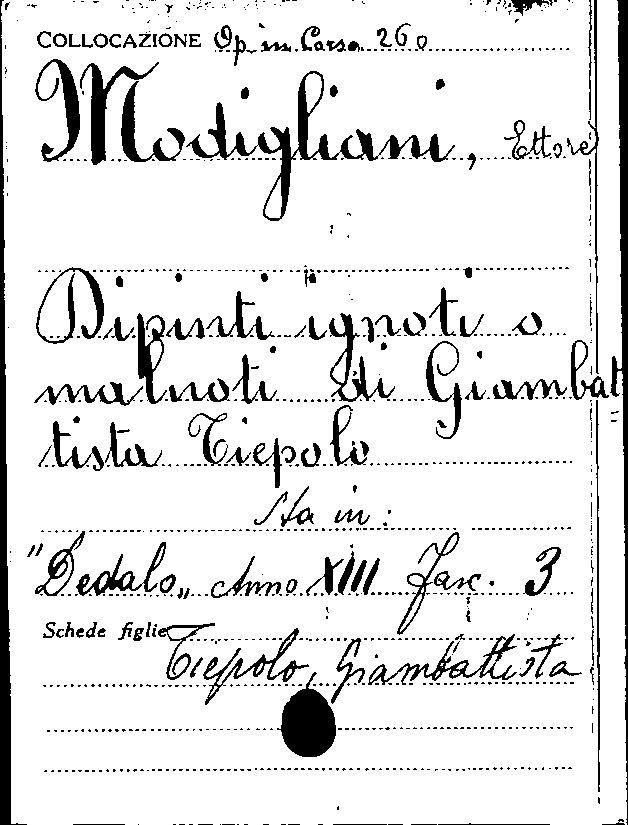 COLLOCAZIONE Op. in Corso 260
Modigliani, Ettore
Dipinti ignoti o
malnoti di Giambat
tista Tiepolo
Sta in:
"Dedalo„ Anno XIII Fasc. 3
Schede figlie
Tiepolo, Giambattista